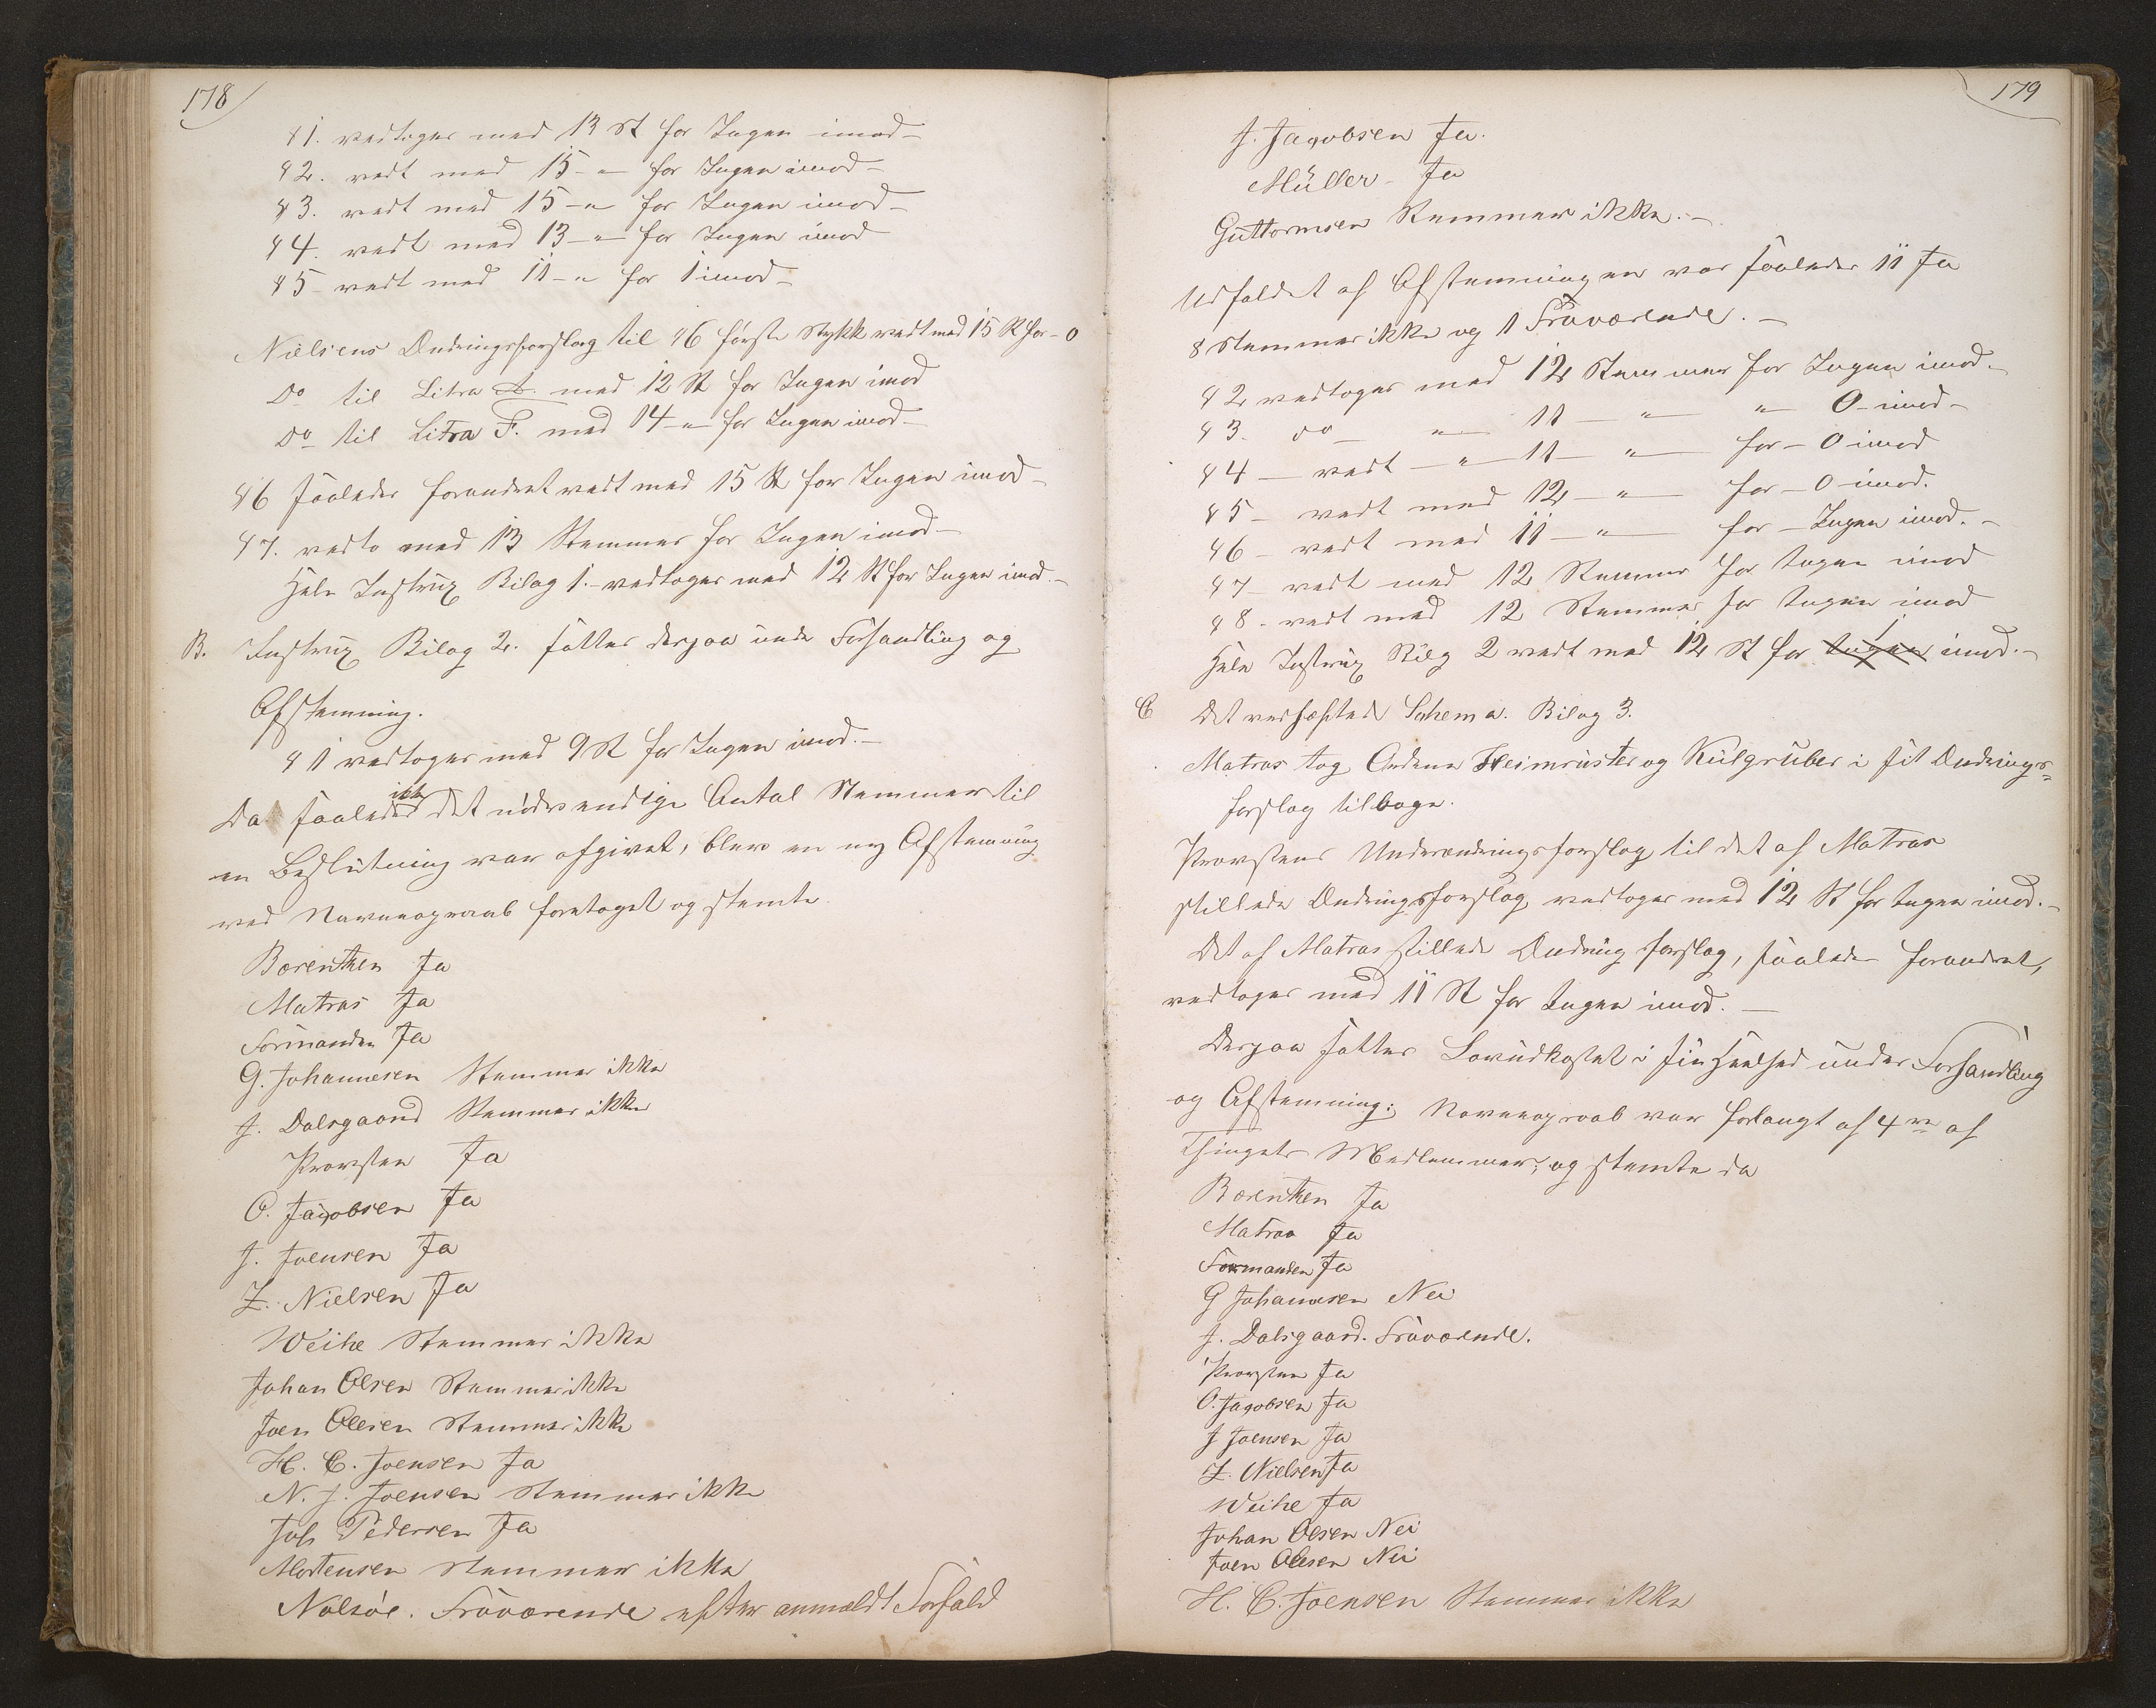 178
§1. vedtoges med 13 St for Ingen imod-
§2. vedt med 15 - " - for Ingen imod -
§3. vedt med 15 - " for Ingen imod -
§4. vedt med 13 - " - for Ingen imod
§5 - vedt med 11 - " for 1 imod -
Nielsens Ændringsforslag til §6 første Stykke vedt med 15 St for - 0
Do til Litra A. med 12 St for Ingen imod
Do til Litra F. med 14 - " - for Ingen imod -
§6 saaledes forandret vedt med 15 St for Ingen imod -
§7. vedto med 13 Stemmer for Ingen imod -
Hele Instrux Bilag 1. - vedtoges med 12 St for Ingen imod. -
B. Instrux Bilag 2. sattes derpaa under Forhandling og
Afstemning.
§1 vedtoges med 9 St for Ingen imod. -
Da saaledes ikke det nødvendige Antal Stemmer til
en Beslutning var afgivet, blev en ny Afstemning
ved Navneopraab foretaget og stemte
Bærentsen Ja
Matras Ja
Formanden Ja
G. Johannesen Stemmer ikke
J. Dalsgaard Stemmer ikke
Provsten Ja
O. Jacobsen Ja
J. Joensen Ja
Z. Nielsen Ja
Weihe Stemmer ikke
Johan Olsen Stemmer ikke
Joen Olesen Stemmer ikke
H. C. Joensen Ja
N. J. Joensen Stemmer ikke
Joh Pedersen Ja
Mortensen Stemmer ikke
Nolsøe. Fraværende efter anmeldt Forfald
179
J. Jacobsen Ja.
Müller - Ja
Guttormsen Stemmer ikke. -
Udfaldet af Afstemningen var saaledes 11 Ja
8 Stemmer ikke og 1 Fraværende. -
§2 vedtoges med 12 Stemmer for Ingen imod. -
§3. do - " - 11 - " - " - 0 - imod -
§4 - vedt - " - 11 - " - for - 0 imod
§5 - vedt med 12 - " - for - 0 - imod.
§6 - vedt med 11 - " - for - Ingen imod. -
§7 - vedt med 12 Stemmer for Ingen imod
§8 - vedt med 12 Stemmer for Ingen imod
Hele Instrux Bilg 2 vedt med 12 St for Ingen 1 imod. -
C Det vedhæftede Schema. Bilag 3.
Matras tog Ordene Heimrüster og Külgruber i sit Ændrings=
forslag tilbage.
Provstens Underændringsforslag til det af Matras
stillede Ændringsforslag vedtoges med 12 St for Ingen imod. -
Det af Matras stillede Ændringsforslag, saaledes forandret,
vedtoges med 11 St for Ingen imod. -
Derpaa sattes Lovudkastet i sin Heelhed under Forhandling
og Afstemning: Navneopraab var forlangt af 4re af
Thingets Medlemmer; og stemte da
Bærentsen Ja
Matras Ja
Formanden Ja
G Johannesen Nei
J. Dalsgaard. Fraværende.
Provsten Ja
O. Jacobsen Ja
J Joensen Ja
Z. Nielsen Ja
Weihe Ja
Johan Olsen Nei
Joen Olesen Nei
H. C. Joensen Stemmer ikke